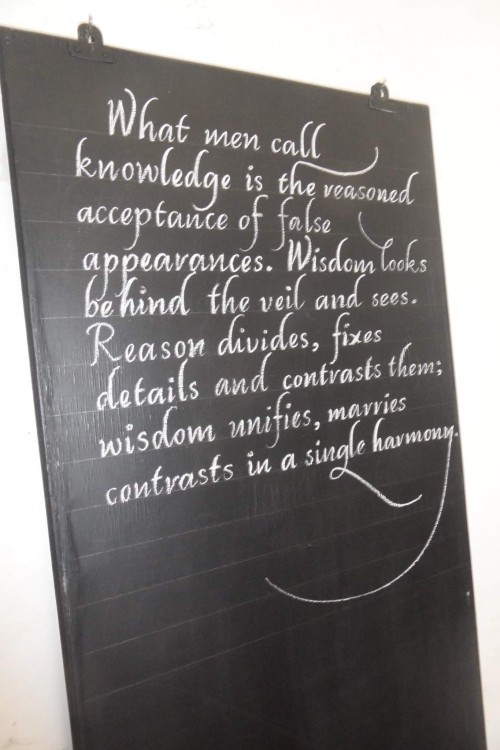 What men call
knowledge is the reasoned
acceptance of false
appearances. Wisdom looks
behind the veil and sees.
Reason divides, fixes
details and contrasts them;
wisdom unifies, marries
contrasts in a single harmony.